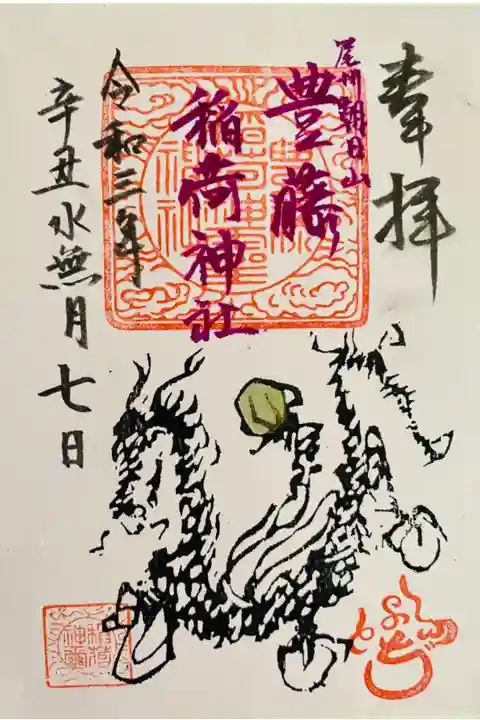 奉拝
尾州朝日山
豊藤
稲荷神社
令和三年
辛丑水無月七日